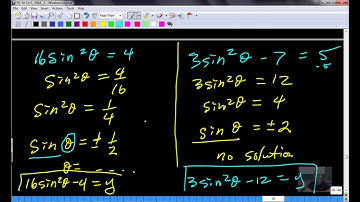 16sin²θ = 4
sin²θ = 4/16
sin²θ = 1/4
sin θ = ± 1/2
θ = - - - -
16sin²θ-4 = y
3sin²θ - 7 = 5
-5
3sin²θ = 12
sin²θ = 4
sin θ = ±2
no solution
3sin²θ-12 = y